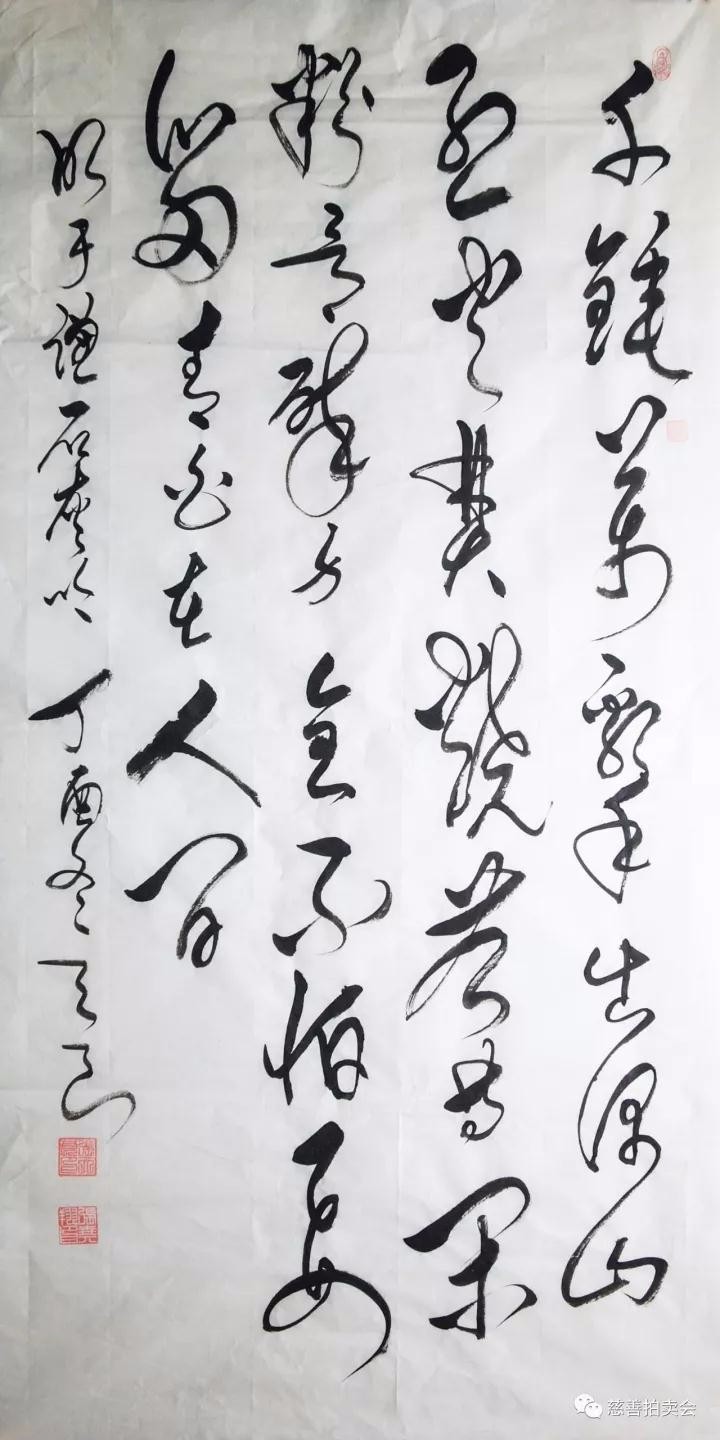 千錘萬擊出深山
烈火焚燒若等閑
粉骨碎身全不怕要
留青白在人間
明于謙石灰吟 丁酉冬
慈善拍卖会